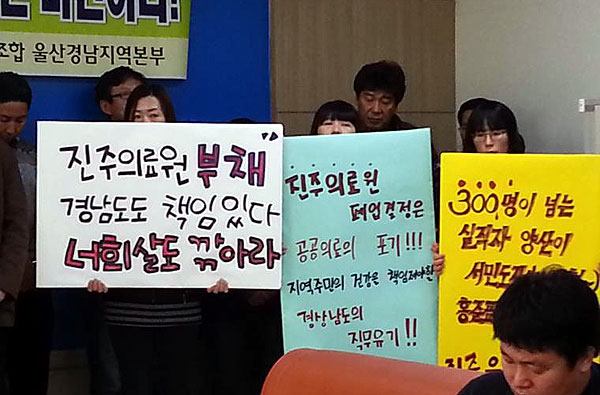 조합 울산경남지역본부
진주의료원 부채
경남도도 책임있다
너희살도 깎아라
진주의료원
폐업결정은
공공의료의 포기!!!
지역주민의 건강을 책임져야할
경상남도의
직무유기!!
300명이 넘는
실직자 양산이